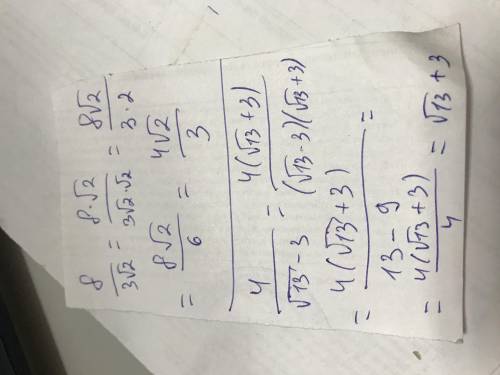 8/(3√2) = (8·√2)/(3√2·√2) = (8√2)/(3·2)
= (8√2)/6 = (4√2)/3
4/(√13 - 3) = (4(√13 + 3))/((√13 - 3)(√13 + 3))
= (4(√13 + 3))/(13 - 9) =
= (4(√13 + 3))/4 = √13 + 3